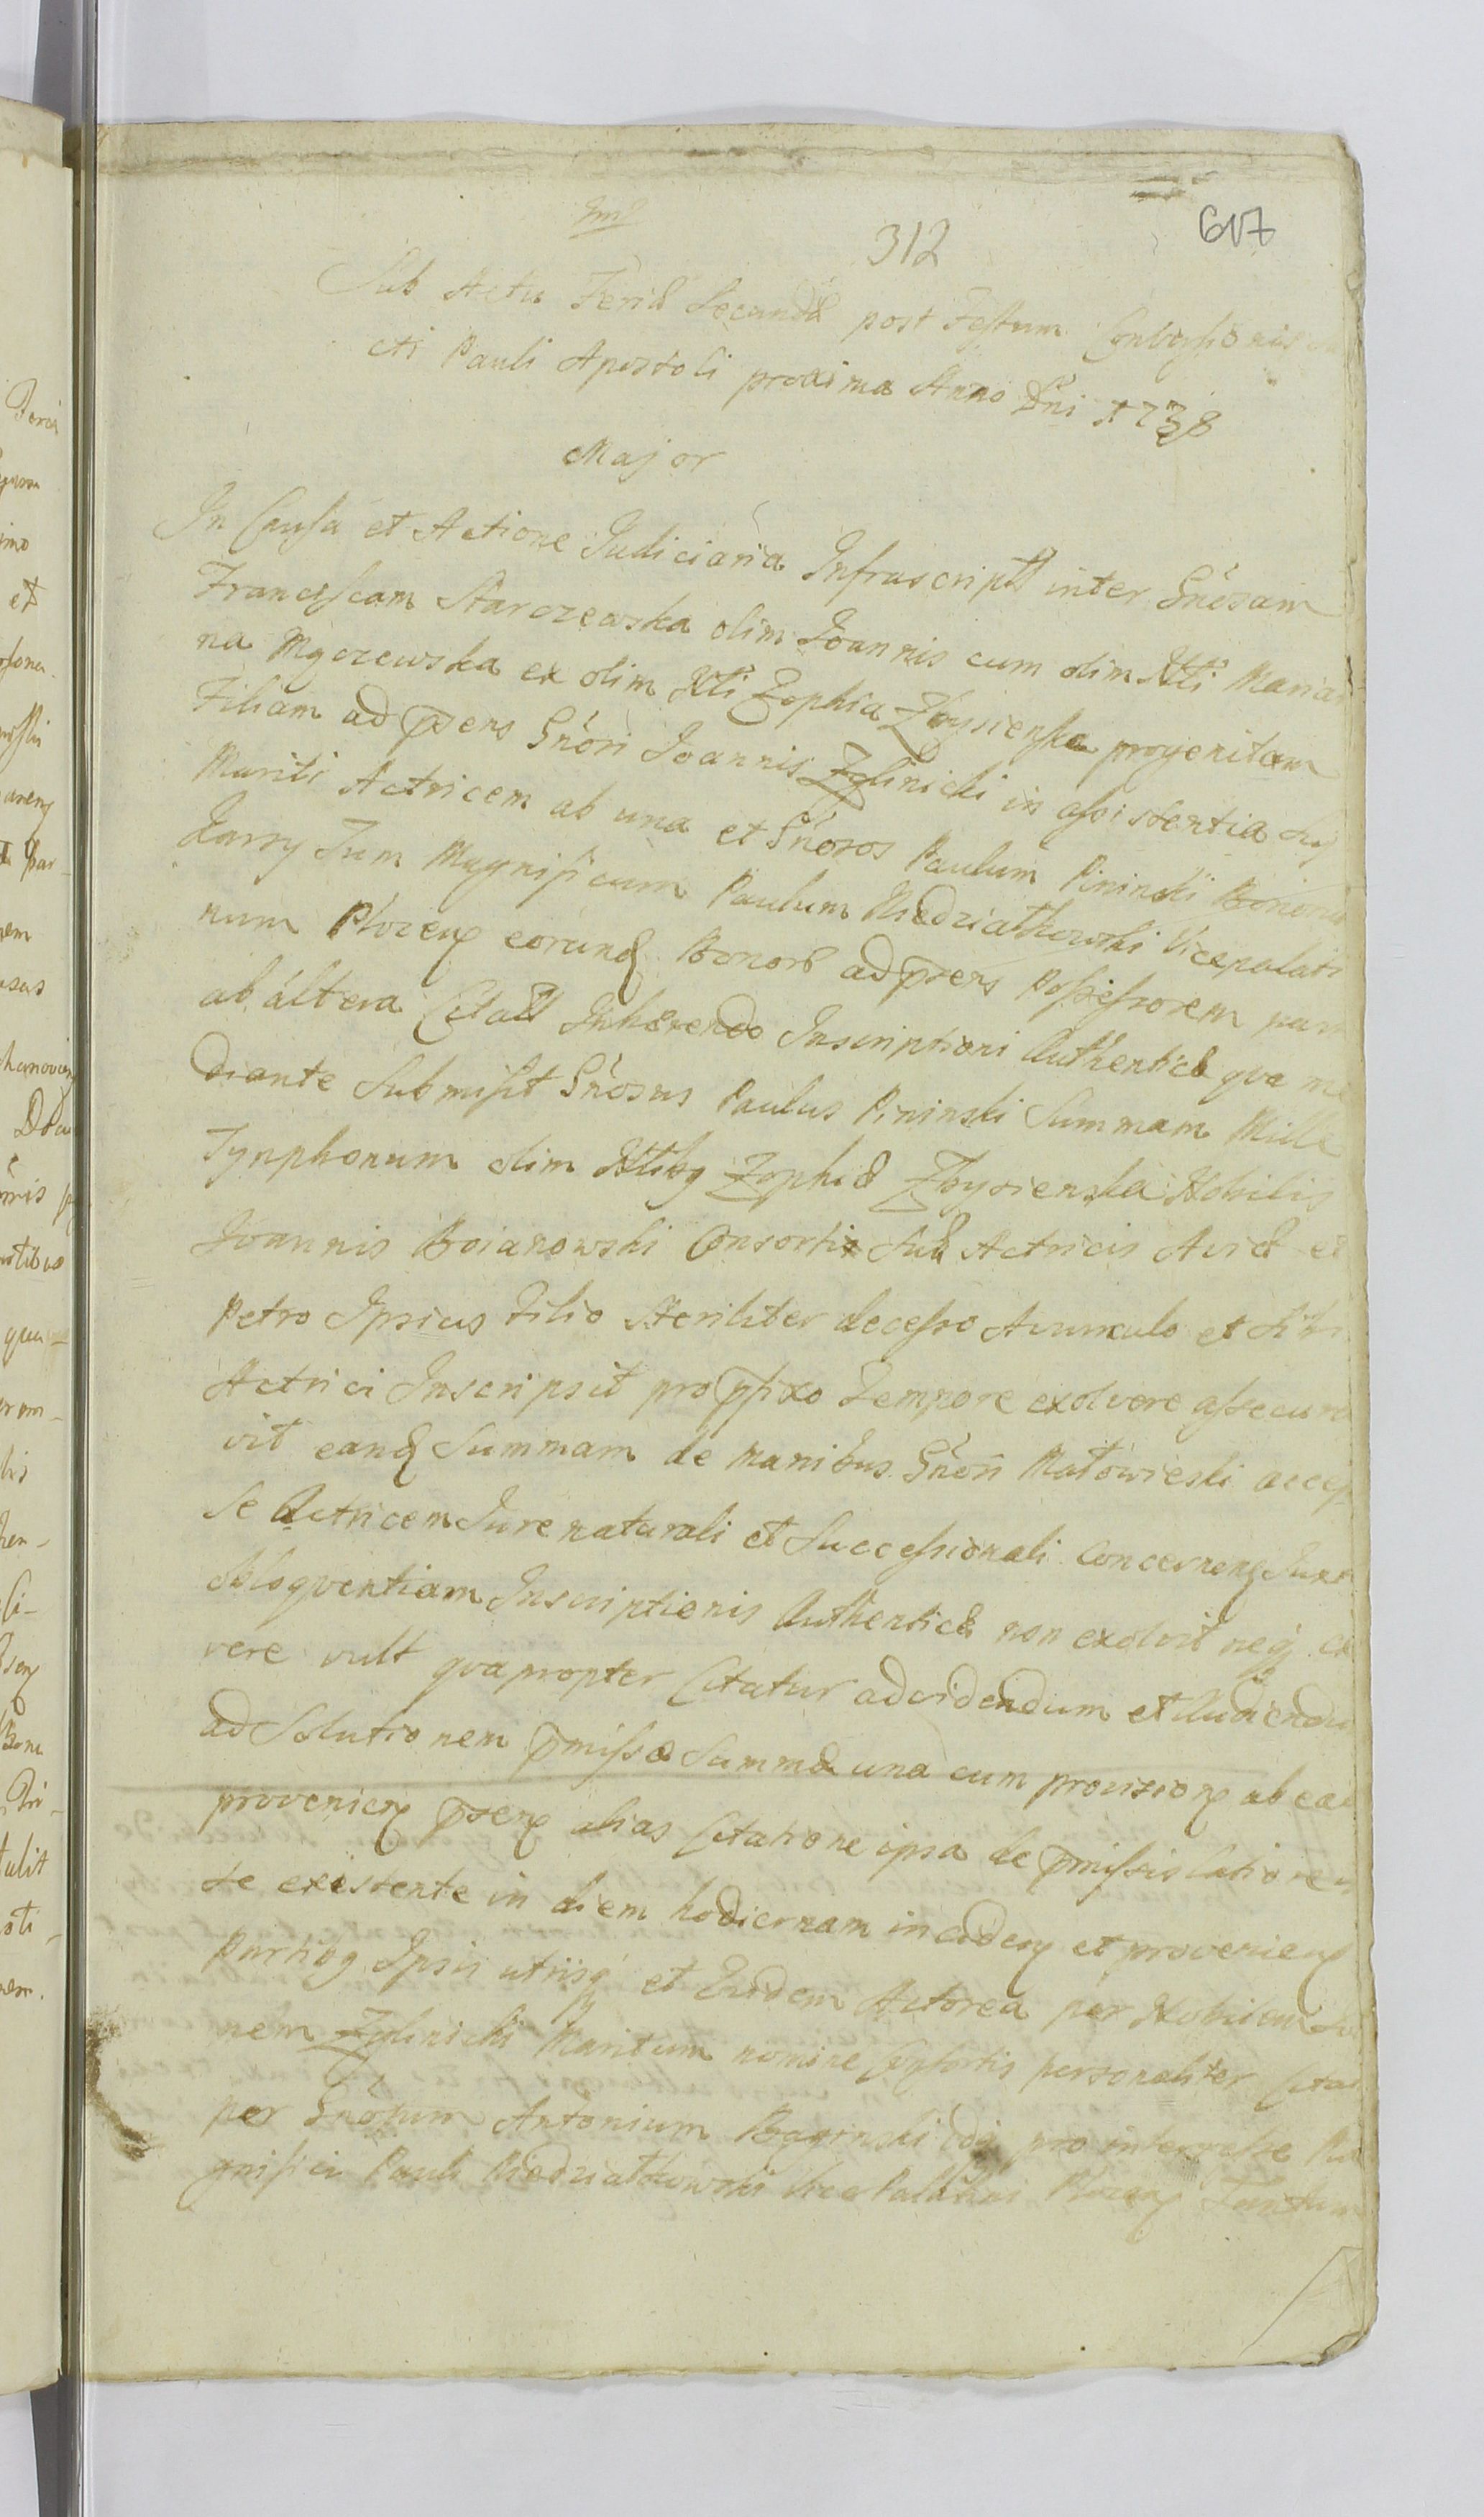 312
617
Sub Actu Feria Secunda post Festum Conversionis
cti Pauli Apostoli proxima Anno Dni 1738
Major
In Causa et Actione Judiciaria Infrascripta inter Gnosam
Francescam Starczewska olim Joannis cum olim Nbli Maria
na Mączewska ex olim Nbli Zophia Zbysienska progenitam
Filiam ad prsens Gnosi Joannis Zglinicki in assistentia Sui
Mariti Actricem ab una et Gnosos Paulum Pininski Bonorum
Zarry Tum Magnificum Paulum Niedziałkowski Vicepalati
num Plocens eorund Bonor ad prsens Possessorem par
ab altera Citat Inhærendo Inscriptioni Authenticæ qva me
diante Submisit Gnosus Paulus Pininski Summam Mille
Tynphonum olim Nblibg Zophiæ Zbysienska Nobilis
Joannis Boianowski Consortis Suæ Actricis Aviæ et
Petro Ipsius Filio Steriliter decesso Avunculo et
Actrici Inscripsit pro pfixo tempore exolvere assecura
vit eand Summam de manibus Gnosi Małowieski accep
Se Actricem Jure naturali et Successionali concernens Juxta
obloqventiam Inscriptionis Authenticæ non exolvit neq ex
vere vult qvapropter Citatur ad videndum et Audiendu
ad Solutionem pmissæ Summæ una cum provisione ab ea
provenien prsens alias Citatione ipsa de pmissis latiore
te existente in diem hodiernam incaden et provenien
Partibg Ipsis utrisq et Eadem Actorea per Nobilem
nem Zglinicki Maritum nomine Consortis personaliter Citat
per Gnosum Antonium Baginski pro interesse Ma
gnifici Pauli Niedziałkowski Vice Palatini Plocens Tantum